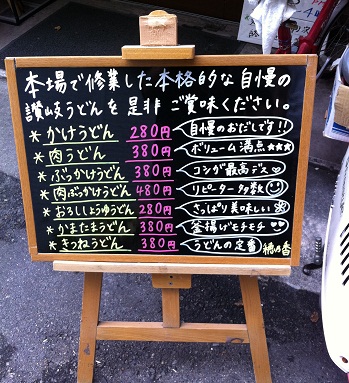 本場で修業した本格的な自慢の
讃岐うどんを是非ご賞味ください。
＊かけうどん 280円 自慢のおだしです!!
＊肉うどん 380円 ボリューム満点★★★
＊ぶっかけうどん 380円 コシが最高デス♡
＊肉ぶっかけうどん 480円 リピーター多数☺
＊おろししょうゆうどん 280円 さっぱり美味しい
＊かまたまうどん 380円 釜揚げモチモチ♡
＊きつねうどん 380円 うどんの定番 穂乃香